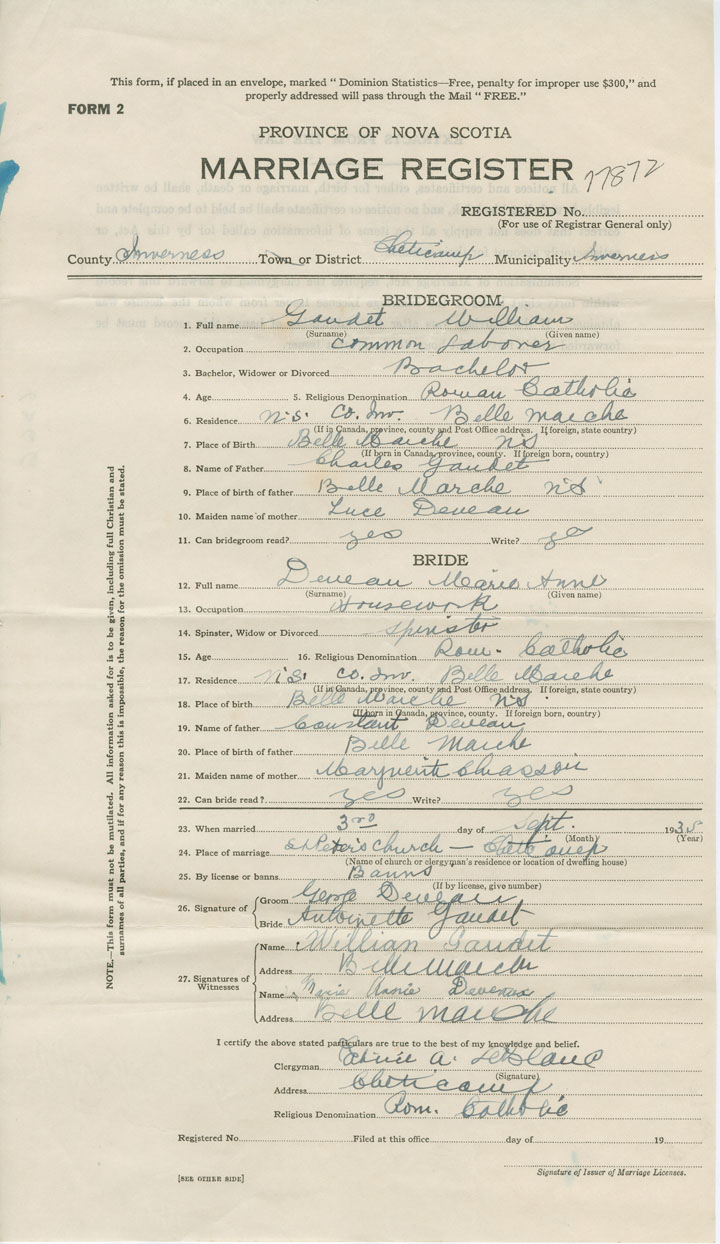 This form, if placed in an envelope, marked "Dominion Statistics—Free, penalty for improper use $300," and
properly addressed will pass through the Mail "FREE."
FORM 2
PROVINCE OF NOVA SCOTIA
MARRIAGE REGISTER 77872
REGISTERED No.
(For use of Registrar General only)
County Inverness Town or District Cheticamp Municipality Inverness
BRIDEGROOM
1. Full name Gaudet William
(Surname) (Given name)
2. Occupation Common Laborer
3. Bachelor, Widower or Divorced Bachelor
4. Age 5. Religious Denomination Roman Catholic
6. Residence N.S. Co. Inv. Belle Marche
(If in Canada, province, county and Post Office address. If foreign, state country)
7. Place of Birth Belle Marche NS
(If born in Canada, province, county. If foreign born, country)
8. Name of Father Charles Gaudet
9. Place of birth of father Belle Marche NS
10. Maiden name of mother Luce Deveau
11. Can bridegroom read? yes Write? yes
BRIDE
12. Full name Deveau Marie Anne
(Surname) (Given name)
13. Occupation Housework
14. Spinster, Widow or Divorced Spinster
15. Age 16. Religious Denomination Rom. Catholic
17. Residence N.S. Co. Inv. Belle Marche
(If in Canada, province, county and Post Office address. If foreign, state country)
18. Place of birth Belle Marche NS.
(If born in Canada, province, county. If foreign born, country)
19. Name of father Constant Deveau
20. Place of birth of father Belle Marche
21. Maiden name of mother Marguerite Chiasson
22. Can bride read? yes Write? yes
23. When married 3rd day of Sept. 1935
(Month) (Year)
24. Place of marriage St Peter's Church — Cheticamp
(Name of church or clergyman's residence or location of dwelling house)
25. By license or banns Banns
(If by license, give number)
26. Signature of Groom George Deveau
Bride Antoinette Gaudet
27. Signatures of Witnesses
Name William Gaudet
Address Belle Marche
Name Marie Annie Deveau
Address Belle Marche
I certify the above stated particulars are true to the best of my knowledge and belief.
Clergyman A. LeBlanc
(Signature)
Address Cheticamp
Religious Denomination Rom. Catholic
Registered No. Filed at this office day of 19
Signature of Issuer of Marriage Licenses.
[SEE OTHER SIDE]
NOTE.—This form must not be mutilated. All information asked for is to be given, including full Christian and
surnames of all parties, and if for any reason this is impossible, the reason for the omission must be stated.